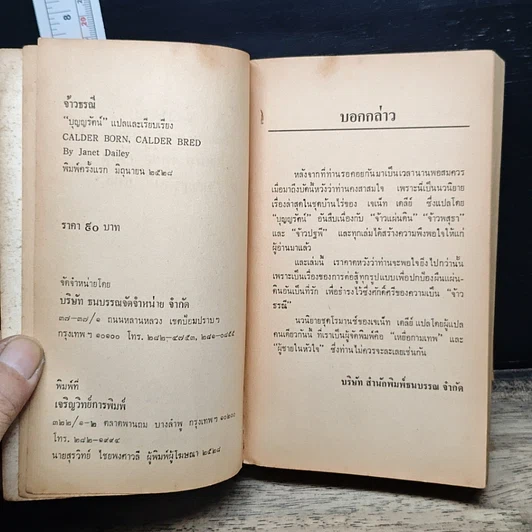 8
20
จ้าวธรณี
"บุญญรัตน์" แปลและเรียบเรียง
CALDER BORN, CALDER BRED
By Janet Dailey
พิมพ์ครั้งแรก มิถุนายน ๒๕๒๘
ราคา ๙๐ บาท
จัดจำหน่ายโดย
บริษัท ธนบรรณจัดจำหน่าย จำกัด
๓๗-๓๗/๑ ถนนหลานหลวง เขตป้อมปราบฯ
กรุงเทพฯ ๑๐๑๐๐ โทร. ๒๘๒-๔๗๕๓, ๒๘๑-๐๘๕๕
พิมพ์ที่
เจริญวิทย์การพิมพ์
๓๒๒/๑-๒ ตลาดพานถม บางลำพู กรุงเทพฯ ๑๐๒๐๐
โทร. ๒๘๒-๑๙๙๔
นายสุรวิทย์ ไชยพงศาวลี ผู้พิมพ์ผู้โฆษณา ๒๕๒๘
บอกกล่าว
หลังจากที่ท่านรอคอยกันมาเป็นเวลานานพอสมควร
เมื่อมาถึงบัดนี้หวังว่าท่านคงสาสมใจ เพราะนี่เป็นนวนิยาย
เรื่องล่าสุดในชุดบ้านไร่ของ เจเน็ท เดลีย์ ซึ่งแปลโดย
"บุญญรัตน์" อันสืบเนื่องกับ "จ้าวแผ่นดิน" "จ้าวพสุธา"
และ "จ้าวปฐพี" และทุกเล่มได้สร้างความพึงพอใจให้แก่
ผู้อ่านมาแล้ว
และเล่มนี้ เราคาดหวังว่าท่านจะพอใจยิ่งไปกว่านั้น
เพราะเป็นเรื่องของการต่อสู้ทุกรูปแบบเพื่อปกป้องผืนแผ่น-
ดินอันเป็นที่รัก เพื่อธำรงไว้ซึ่งศักดิ์ศรีของความเป็น "จ้าว
ธรณี"
นวนิยายชุดโรมานซ์ของเจเน็ท เดลีย์ แปลโดยผู้แปล
คนเดียวกันนี้ ที่เราเป็นผู้จัดพิมพ์คือ "เหยื่อกามเทพ" และ
"ผู้ชายในหัวใจ" ซึ่งท่านไม่ควรจะละเลยเช่นกัน
บริษัท สำนักพิมพ์ธนบรรณ จำกัด